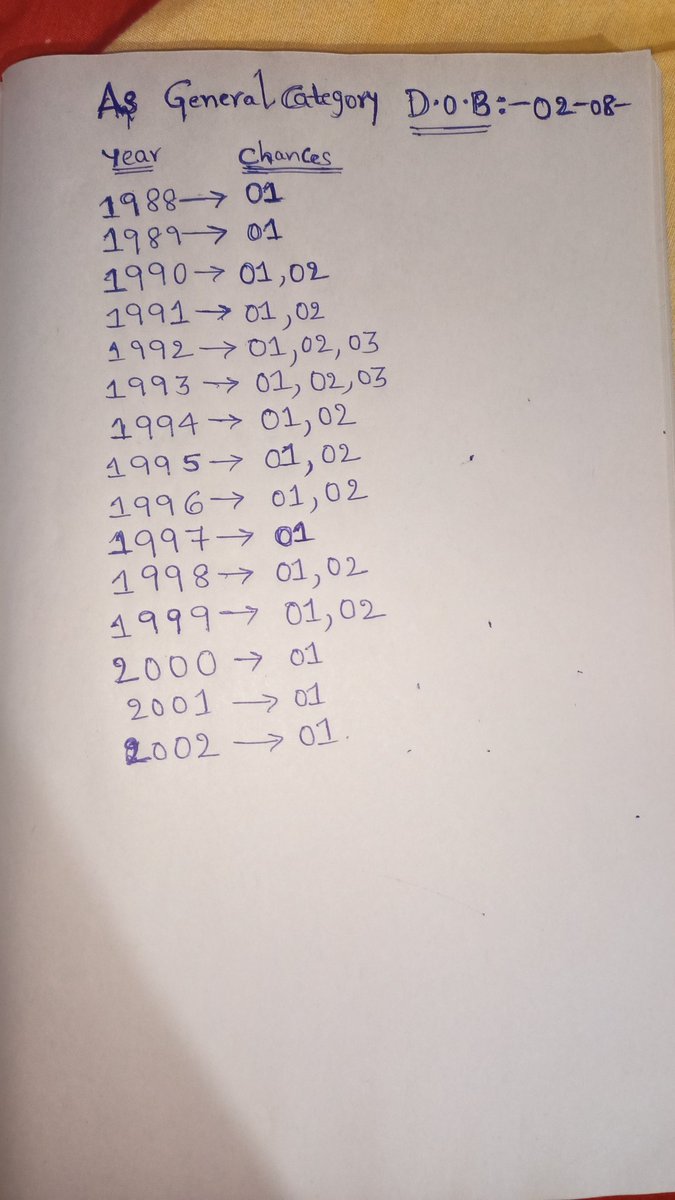 As General Category D.O.B:-02-08-
Year Chances
1988→ 01
1989→ 01
1990→ 01,02
1991→ 01,02
1992→ 01,02,03
1993→ 01,02,03
1994→ 01,02
1995→ 01,02
1996→ 01,02
1997→ 01
1998→ 01,02
1999→ 01,02
2000→ 01
2001→ 01
2002→ 01.